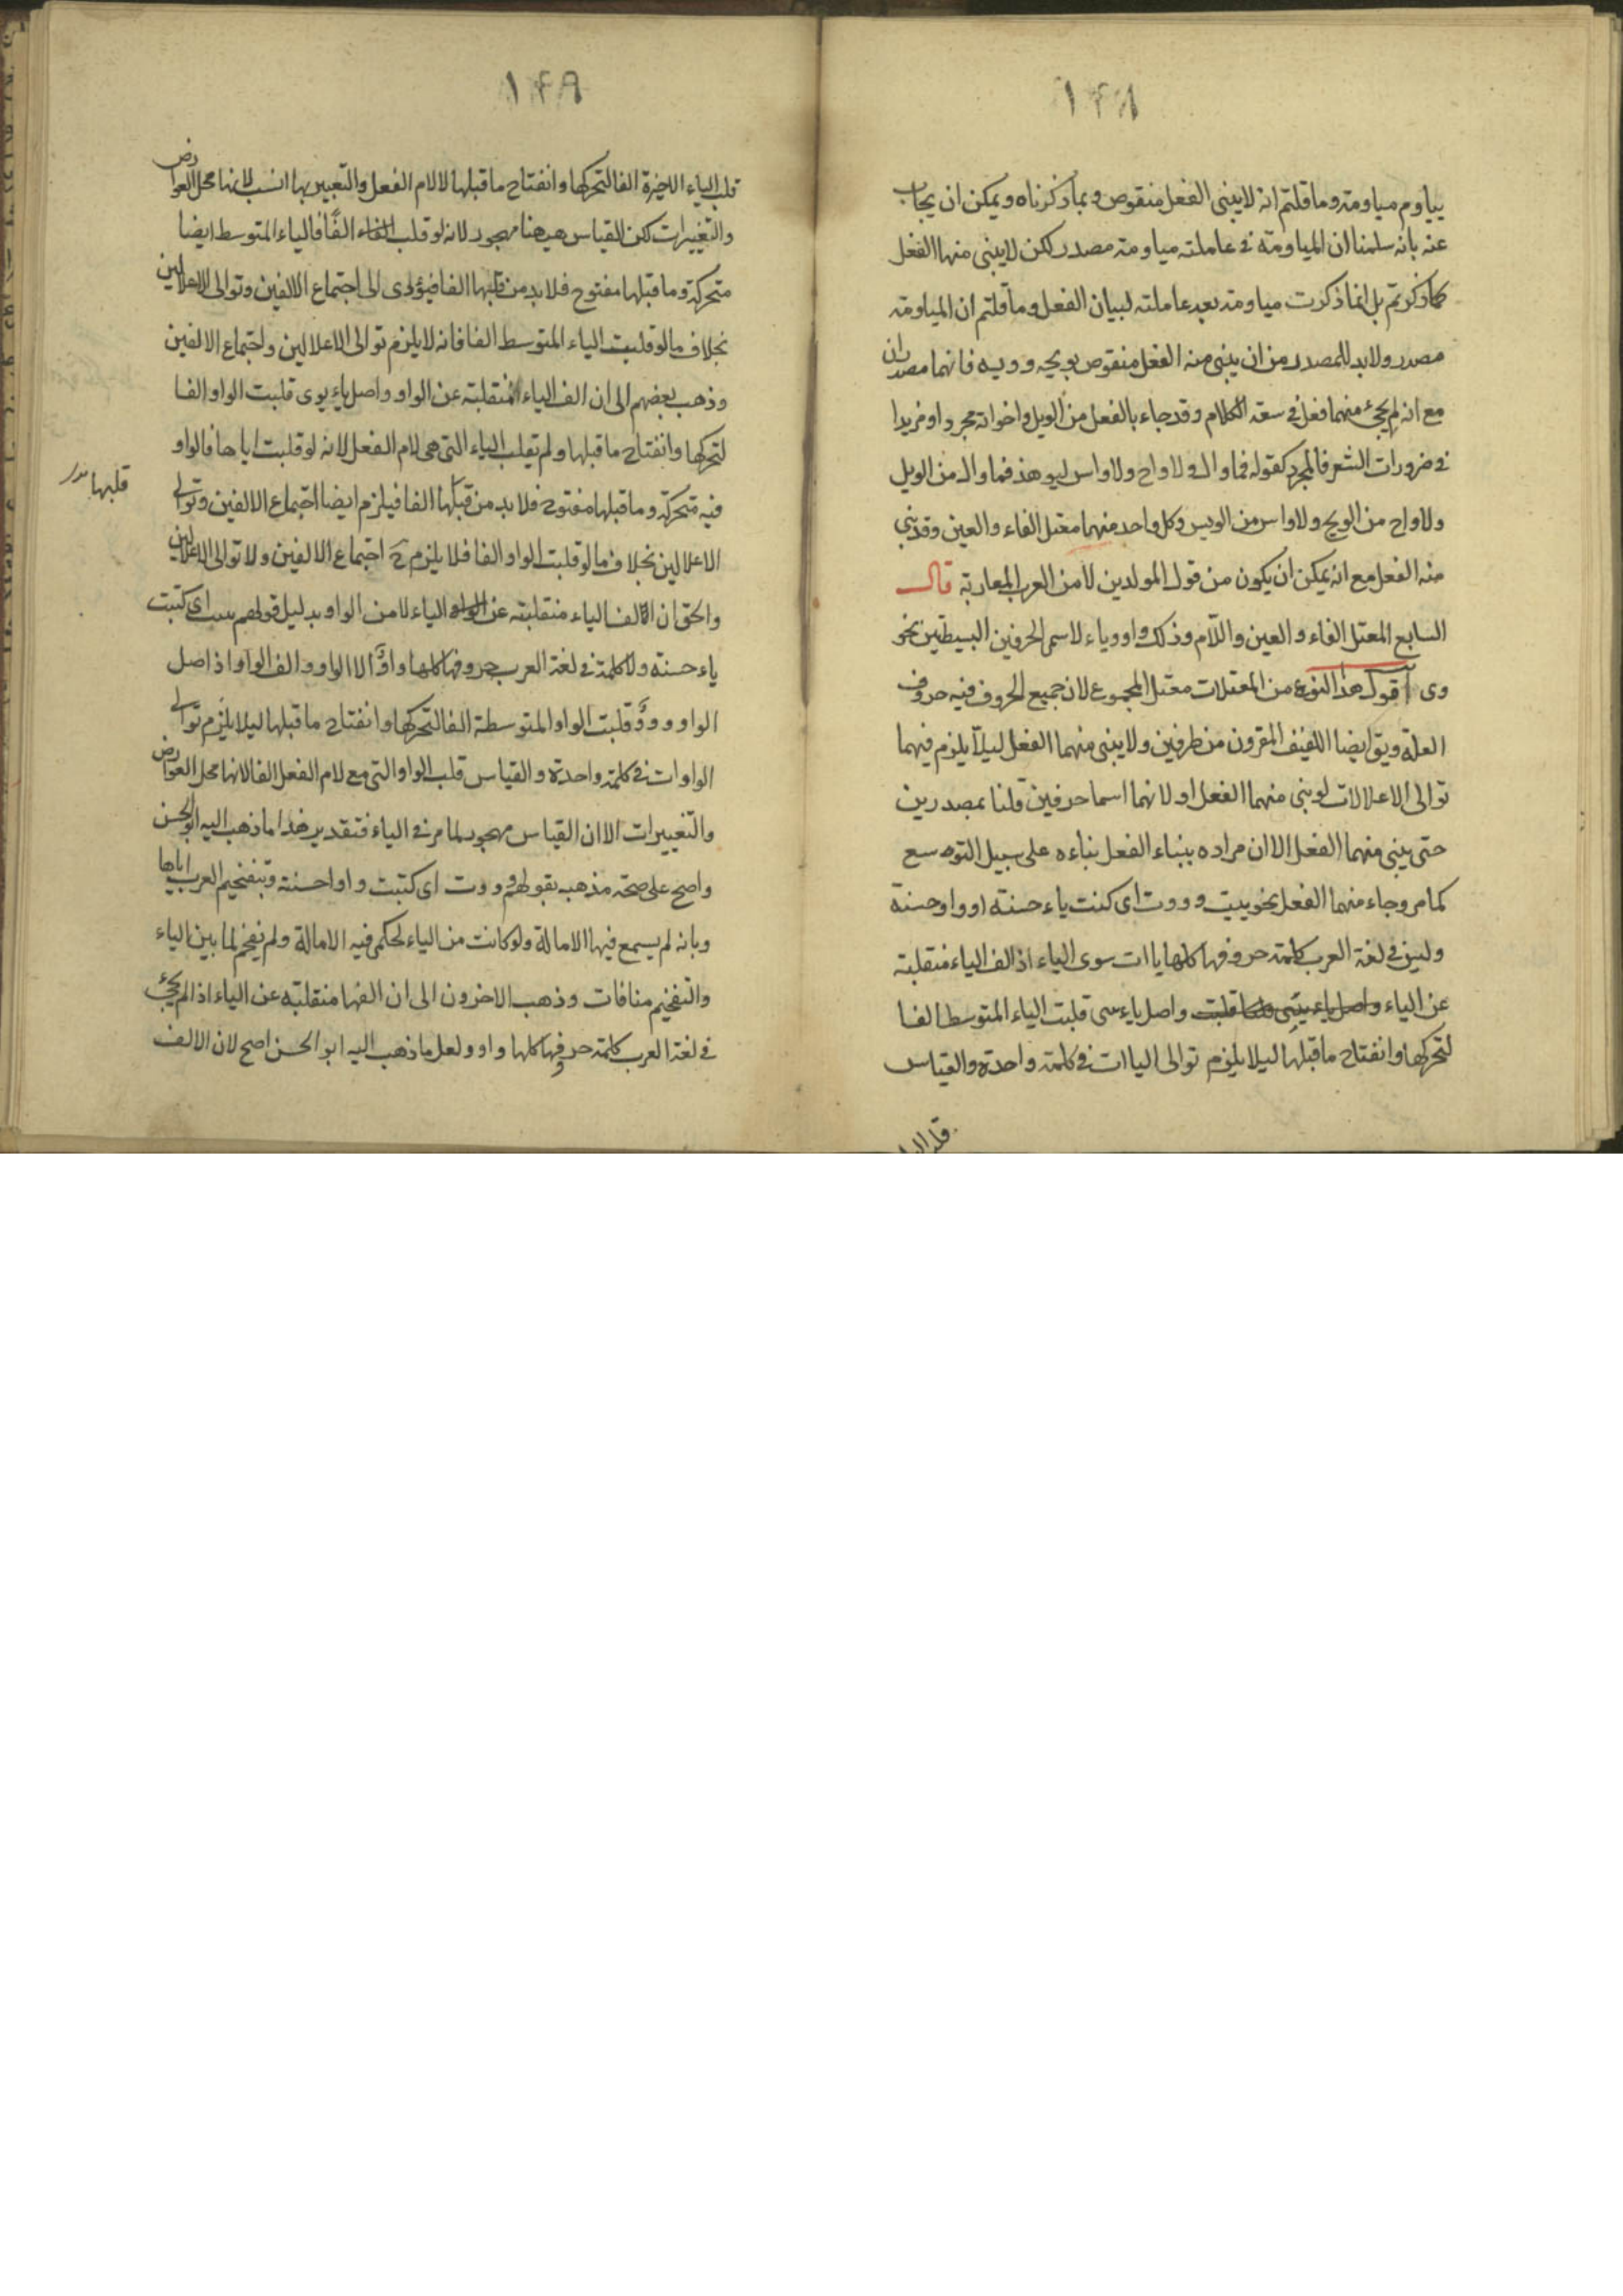 ١٤٨
يياوم مياومة وما قلتم انه لا يبنى الفعل منقوص وبما ذكرناه ويمكن ان يجاب
عنه بانه سلمنا ان المياومة في عاملته مياومة مصدر لكن لا يبنى منها الفعل
كما ذكرتم بل انما ذكرت مياومة بعد عاملته لبيان الفعل وما قلتم ان المياومة
مصدر ولا بد للمصدر من ان يبنى منه الفعل منقوص بويحه وويه فانهما مصدران
مع انه لم يجئ منهما فعل في سعة الكلام وقد جاء بالفعل من الويل واخواته مجردا ومزيدا
في ضرورات الشعر فالمجرد كقوله فما وال ولا واح ولا واس ابو هند فما وال من الويل
ولا واح من الويح ولا واس من الويس وكل واحد منهما معتل الفاء والعين وقد بنى
منه الفعل مع انه يمكن ان يكون من قول المولدين لا من العرب العاربة قال
السابع المعتل الفاء والعين واللام وذلك واو وياء لاسمى الحرفين البسيطين نحو
وى اقول هذا النوع من المعتلات معتل المجموع لان جميع الحروف فيه حروف
العلة ويق ايضا اللفيف المقرون من طرفين ولا يبنى منهما الفعل ليلا يلزم فيهما
توالى الاعلالات لو بنى منهما الفعل او لانهما اسما حرفين قلنا بمصدرين
حتى يبنى منهما الفعل الا ان مراده ببناء الفعل بناءه على سبيل التوسع
كما مر وجاء منهما الفعل نحو يييت وووت اى كتبت ياء حسنة او واو حسنة
وليس في لغة العرب كلمة حروفها كلها ياات سوى الياء اذ الف الياء منقلبة
عن الياء واصل ياء ييى قلبت واصل ياء ييى قلبت الياء المتوسط الفا
لتحركها وانفتاح ما قبلها ليلا يلزم توالى الياات في كلمة واحدة والقياس
قلب الياء
١٤٩
قلب الياء الاخيرة الفا لتحركها وانفتاح ما قبلها لا لام الفعل والتعبير بها انسب لانها محل العوارض
والتغييرات لكن القياس ههنا مهجور لانه لو قلب الفاء الفًا فالياء المتوسط ايضا
متحركة وما قبلها مفتوح فلا بد من قلبها الفا فيؤدى الى اجتماع الالفين وتوالى الاعلالين
بخلاف ما لو قلبت الياء المتوسط الفا فانه لا يلزم توالى الاعلالين واجتماع الالفين
وذهب بعضهم الى ان الف الياء المنقلبة عن الواو واصل ياء يوى قلبت الواو الفا
لتحركها وانفتاح ما قبلها ولم يقلب الياء التى هى لام الفعل لانه لو قلبت اياها فالواو
فيه متحركة وما قبلها مفتوح فلا بد من قبلها الفا فيلزم ايضا اجتماع الالفين وتوالى
قلبها
الاعلالين بخلاف ما لو قلبت الواو الفا فلا يلزم ح اجتماع الالفين ولا توالى الاعلالين
والحق ان الالف الياء منقلبة عن الواو الياء لا من الواو بدليل قولهم ييت اى كتبت
ياء حسنة ولا كلمة في لغة العرب حروفها كلها واوٌ الا الواو والف الواو اذ اصل
الواو ووو قلبت الواو المتوسطة الفا لتحركها وانفتاح ما قبلها ليلا يلزم توالى
الواوات في كلمة واحدة والقياس قلب الواو التى مع لام الفعل الفا لانها محل العوارض
والتغييرات الا ان القياس مهجور لما مر في الياء فتقدير هذا ما ذهب اليه ابو الحسن
واصح على صحة مذهبه بقولهم ووت اى كتبت واوا حسنة وبتفخيم العرب اياها
وبانه لم يسمع فيها الامالة ولو كانت من الياء لحكم فيه الامالة ولم يفخم لما بين الياء
والتفخيم منافات وذهب الاخرون الى ان الفها منقلبة عن الياء اذا لم يجئ
في لغة العرب كلمة حروفها كلها واو ولعل ما ذهب اليه ابو الحسن اصح لان الالف